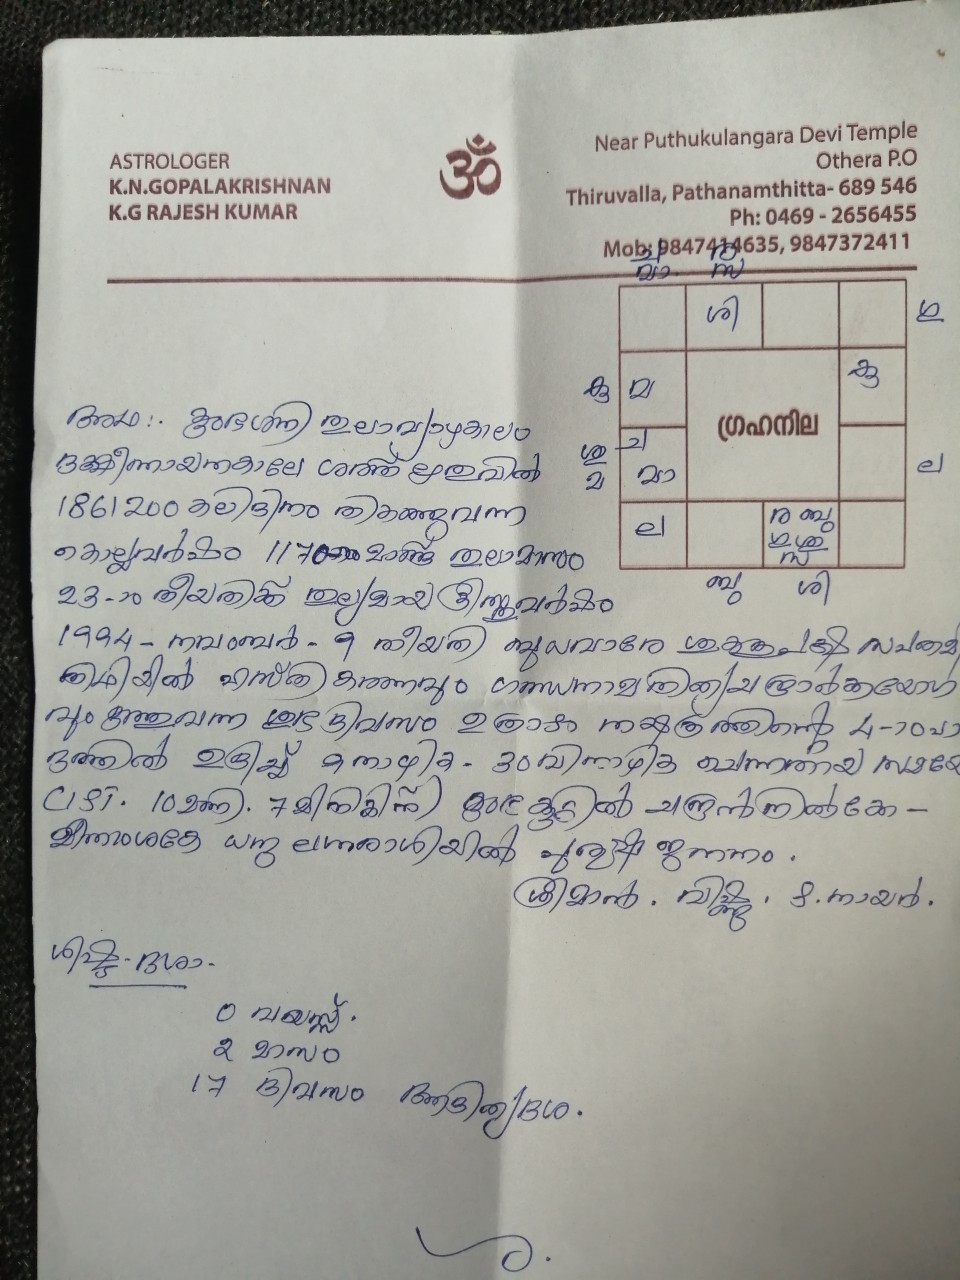 ASTROLOGER
K.N.GOPALAKRISHNAN
K.G RAJESH KUMAR
ॐ
Near Puthukulangara Devi Temple
Othera P.O
Thiruvalla, Pathanamthitta- 689 546
Ph: 0469 - 2656455
Mob: 9847414635, 9847372411
മാ സ
ശി ഗു
കു മ കു
ഗ്രഹനില
ശു ച
മ മാ ല
ല ര ബു
ഗു ശു
സ
ബു ശി
അഥ:. കുംഭശനി തുലാവ്യാഴകാലം
ദക്ഷിണായനകാലേ ശരത് ഋതുവിൽ
1861200 കലിദിനം തികഞ്ഞുവന്ന
കൊല്ലവർഷം 1170 മാണ്ട് തുലാമാസം
23-ാം തീയതിക്ക് തുല്യമായ ക്രിസ്തുവർഷം
1994 - നവംബർ - 9 തീയതി ബുധവാരേ ശുക്ലപക്ഷ സപ്തമി
തിഥിയിൽ ഹസ്തി കരണവും ഗണ്ഡനാമനിത്യ
വും കൂടുവന്ന ശുഭദിവസം ഉത്രാടം നക്ഷത്രത്തിന്റെ 4-ാം പാ
ദത്തിൽ ഉദിച്ച് 9 നാഴിക - 30 വിനാഴിക ചെന്നതായ സമയേ
(IST. 10 മണി. 7 മിനിട്ടിന്) കൂറിൽ ചന്ദ്രൻ നിൽകേ -
മീനാംശകേ ധനു ലഗ്നരാശിയിൽ പുരുഷ ജനനം.
ശ്രീമാൻ. വിഷ്ണു. നായർ.
ശിഷ്ട-ദശാ-
0 വയസ്സ്.
2 മാസം
17 ദിവസം ആദിത്യദശ.